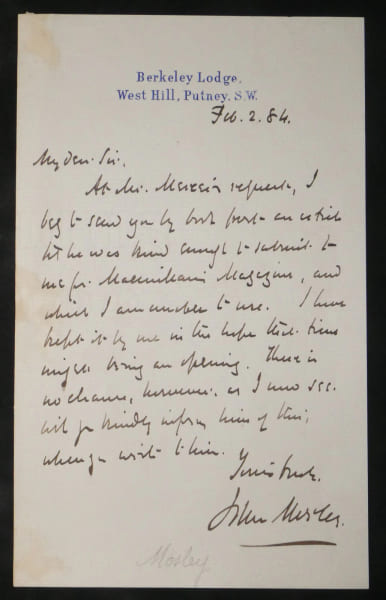 Berkeley Lodge,
West Hill, Putney. S.W.
Feb. 2. 84.
My dear Sir,
At Mr. request, I
beg to send you by book post an article
he was kind enough to submit to
me for Macmillan's Magazine, and
which I am unable to use. I have
kept it by me in the hope that time
might bring an opening. There is
no chance, however, as I now see.
Will you kindly inform him of this,
when you write to him.
Yours
John Morley.
Mosley